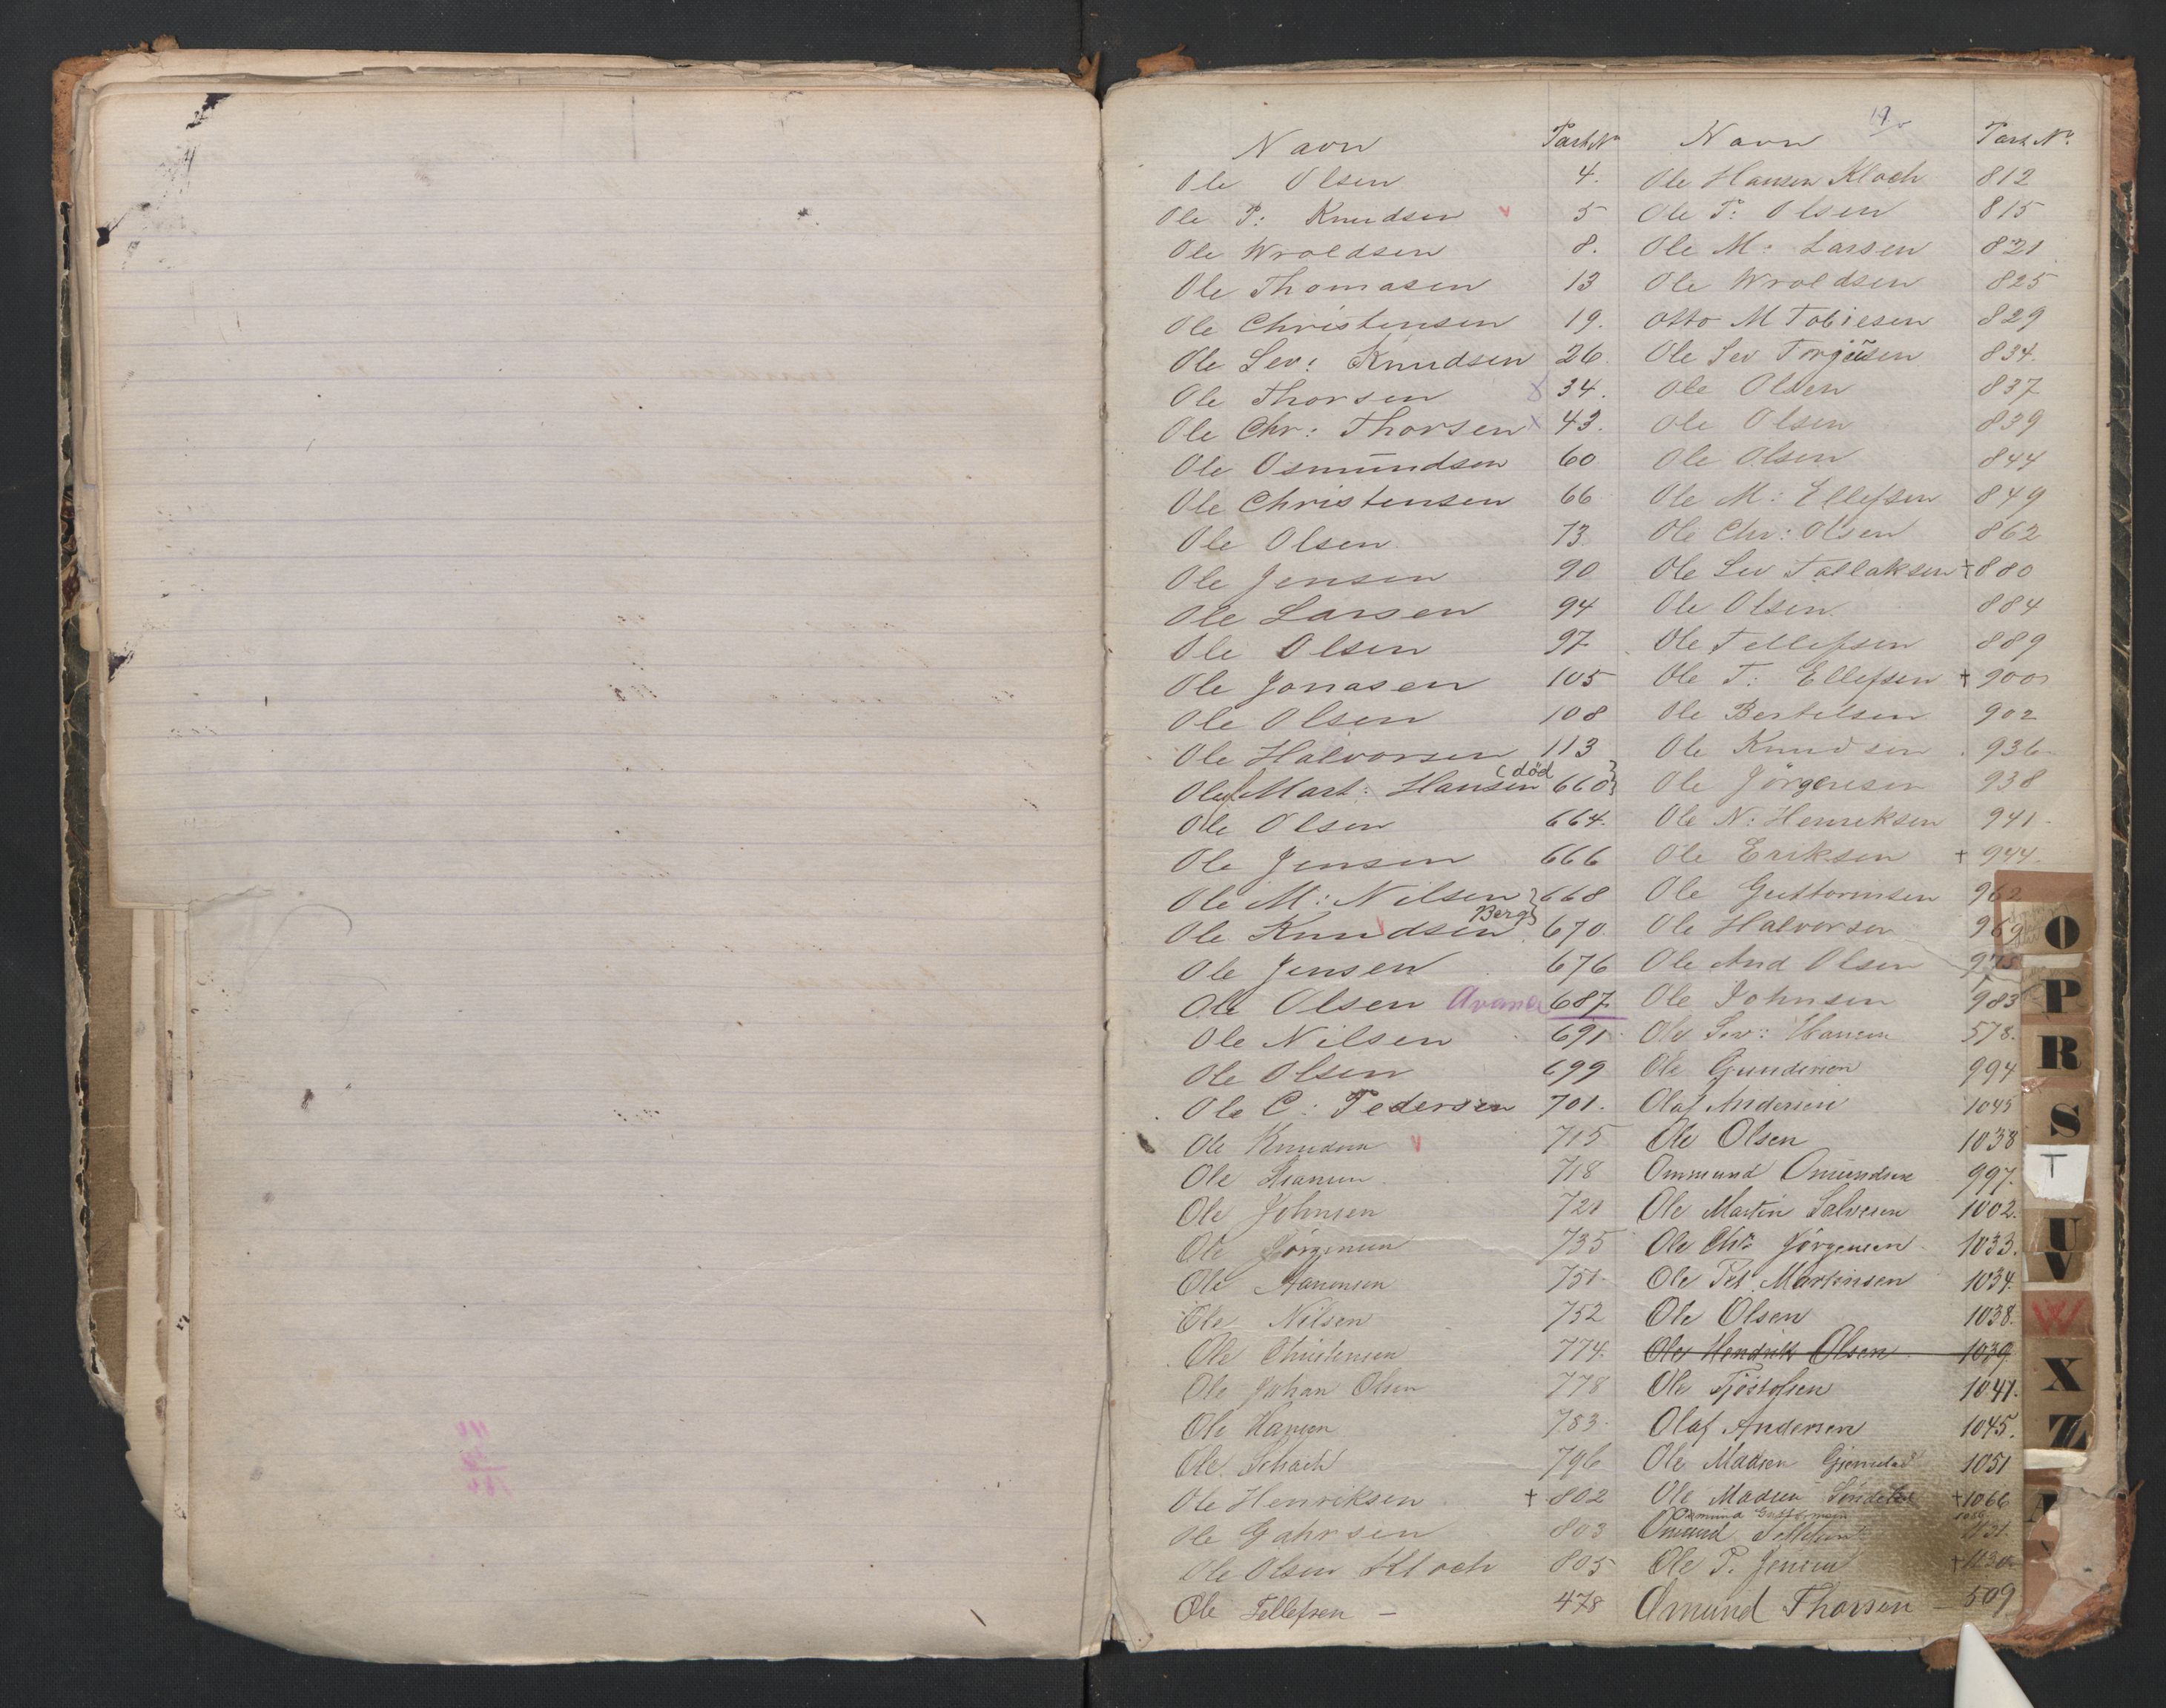 19
Navn Part. Nr
Ole Olsen 4.
Ole P: Knudsen v 5
Ole Wroldsen 8.
Ole Thomasen 13
Ole Christensen 19.
Ole Sev: Knudsen 26
Ole Thorsen x 34.
Ole Chr: Thorsen x 43.
Ole Osmundsen 60
Ole Christensen 66
Ole Olsen 73
Ole Jensen 90
Ole Larsen 94
Ole Olsen 97
Ole Jonasen 105
Ole Olsen 108
Ole Halvorsen 113
Ole Mart: Hansen (död 660
Ole Olsen 664.
Ole Jensen 666
Ole M: Nilsen 668
Ole Knudsen Berg 670
Ole Jensen 676
Ole Olsen 687
Ole Nilsen 691
Ole Olsen 699
Ole C: Pedersen 701.
Ole Knudsen v 715
Ole 718
Ole Johnsen 721
Ole Jörgensen 735
Ole 751.
Ole Nilsen 752
Ole Christensen 774.
Ole Johan Olsen 778
Ole Hansen 783.
Ole Schack 796
Ole Henriksen † 802
Ole Gahrsen 803
Ole Olsen Kloch 805
Ole Tellefsen – 478
Navn Part. Nr
Ole Hansen Kloch 812
Ole P: Olsen 815
Ole M: Larsen 821
Ole Wroldsen 825
Otto M Tobiesen 829
Ole Sev Torjusen 834.
Ole Olsen 837
Ole Olsen 839
Ole Olsen 844
Ole M: Ellefsen 849
Ole Chr: Olsen 862
Ole Sev Tallaksen † 880
Ole Olsen 884
Ole Tellefsen 889
Ole T: Ellefsen † 900
Ole Bertelsen 902
Ole Knudsen 936
Ole Jörgensen 938
Ole N: Henriksen 941
Ole Eriksen † 944.
Ole Guttormsen 962
Ole Halvorsen 969
Ole And Olsen 975
Ole Johnsen 983
Ole Sev: Hansen 578.
Ole Gundersen 994
Olaf Andersen 1045
Ole Olsen 1038
Ommund Omundsen 997.
Ole Martin Salvesen 1002.
Ole Chr Jörgensen 1033.
Ole Pet. Martinsen 1034.
Ole Olsen 1038.
Ole Hendrik Olsen 1039
Ole Tjöstolsen 1041.
Olaf Andersen 1045.
Ole Madsen 1051
Ole Madsen Söndeled † 1066
Omund Tellefsen
Ole P. Jensen †
Omund Thorsen – 509
O
P
R
S
T
U
V
W
X
Z